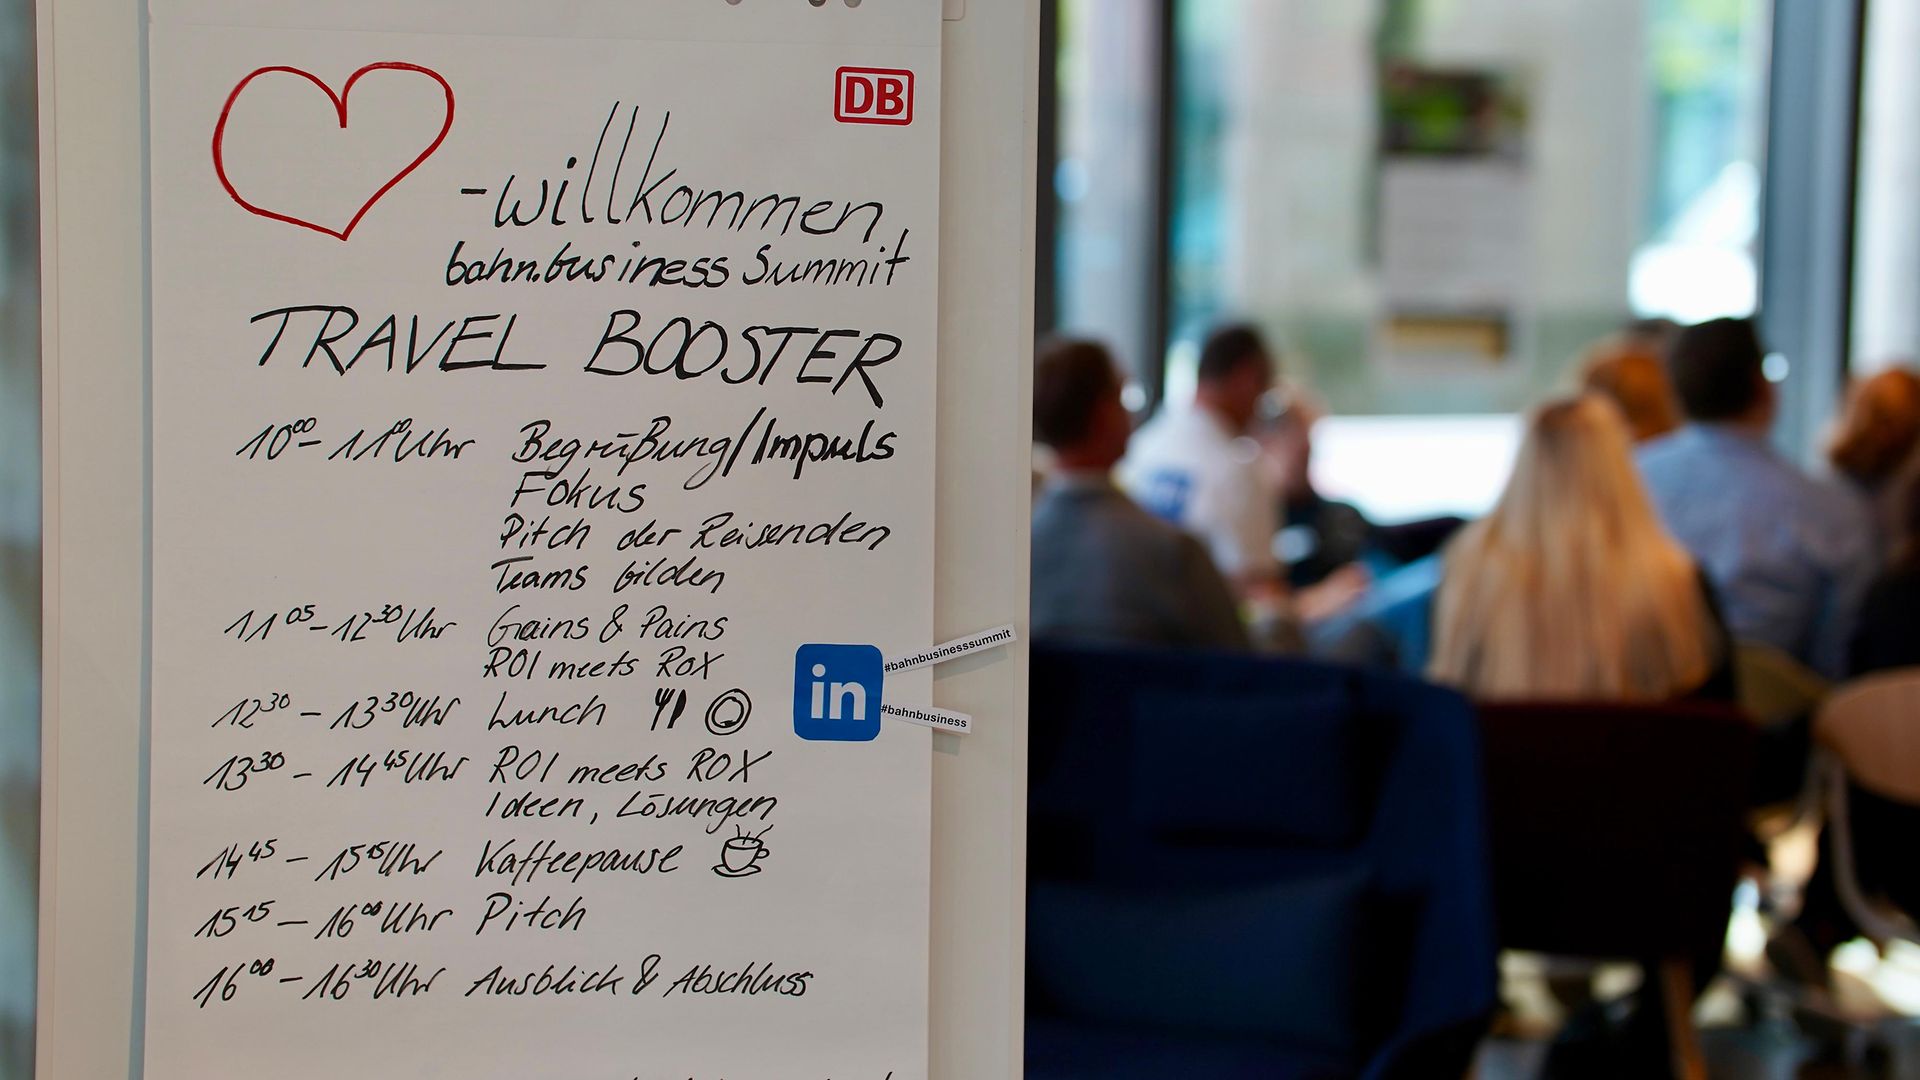 DB
-willkommen
bahn.business Summit
TRAVEL BOOSTER
10⁰⁰ - 11⁰⁰ Uhr Begrüßung/Impuls
Fokus
Pitch der Reisenden
Teams bilden
11⁰⁵ - 12³⁰ Uhr Gains & Pains
ROI meets ROX
12³⁰ - 13³⁰ Uhr Lunch
13³⁰ - 14⁴⁵ Uhr ROI meets ROX
Ideen, Lösungen
14⁴⁵ - 15¹⁵ Uhr Kaffeepause
15¹⁵ - 16⁰⁰ Uhr Pitch
16⁰⁰ - 16³⁰ Uhr Ausblick & Abschluss
in
#bahnbusinesssummit
#bahnbusiness